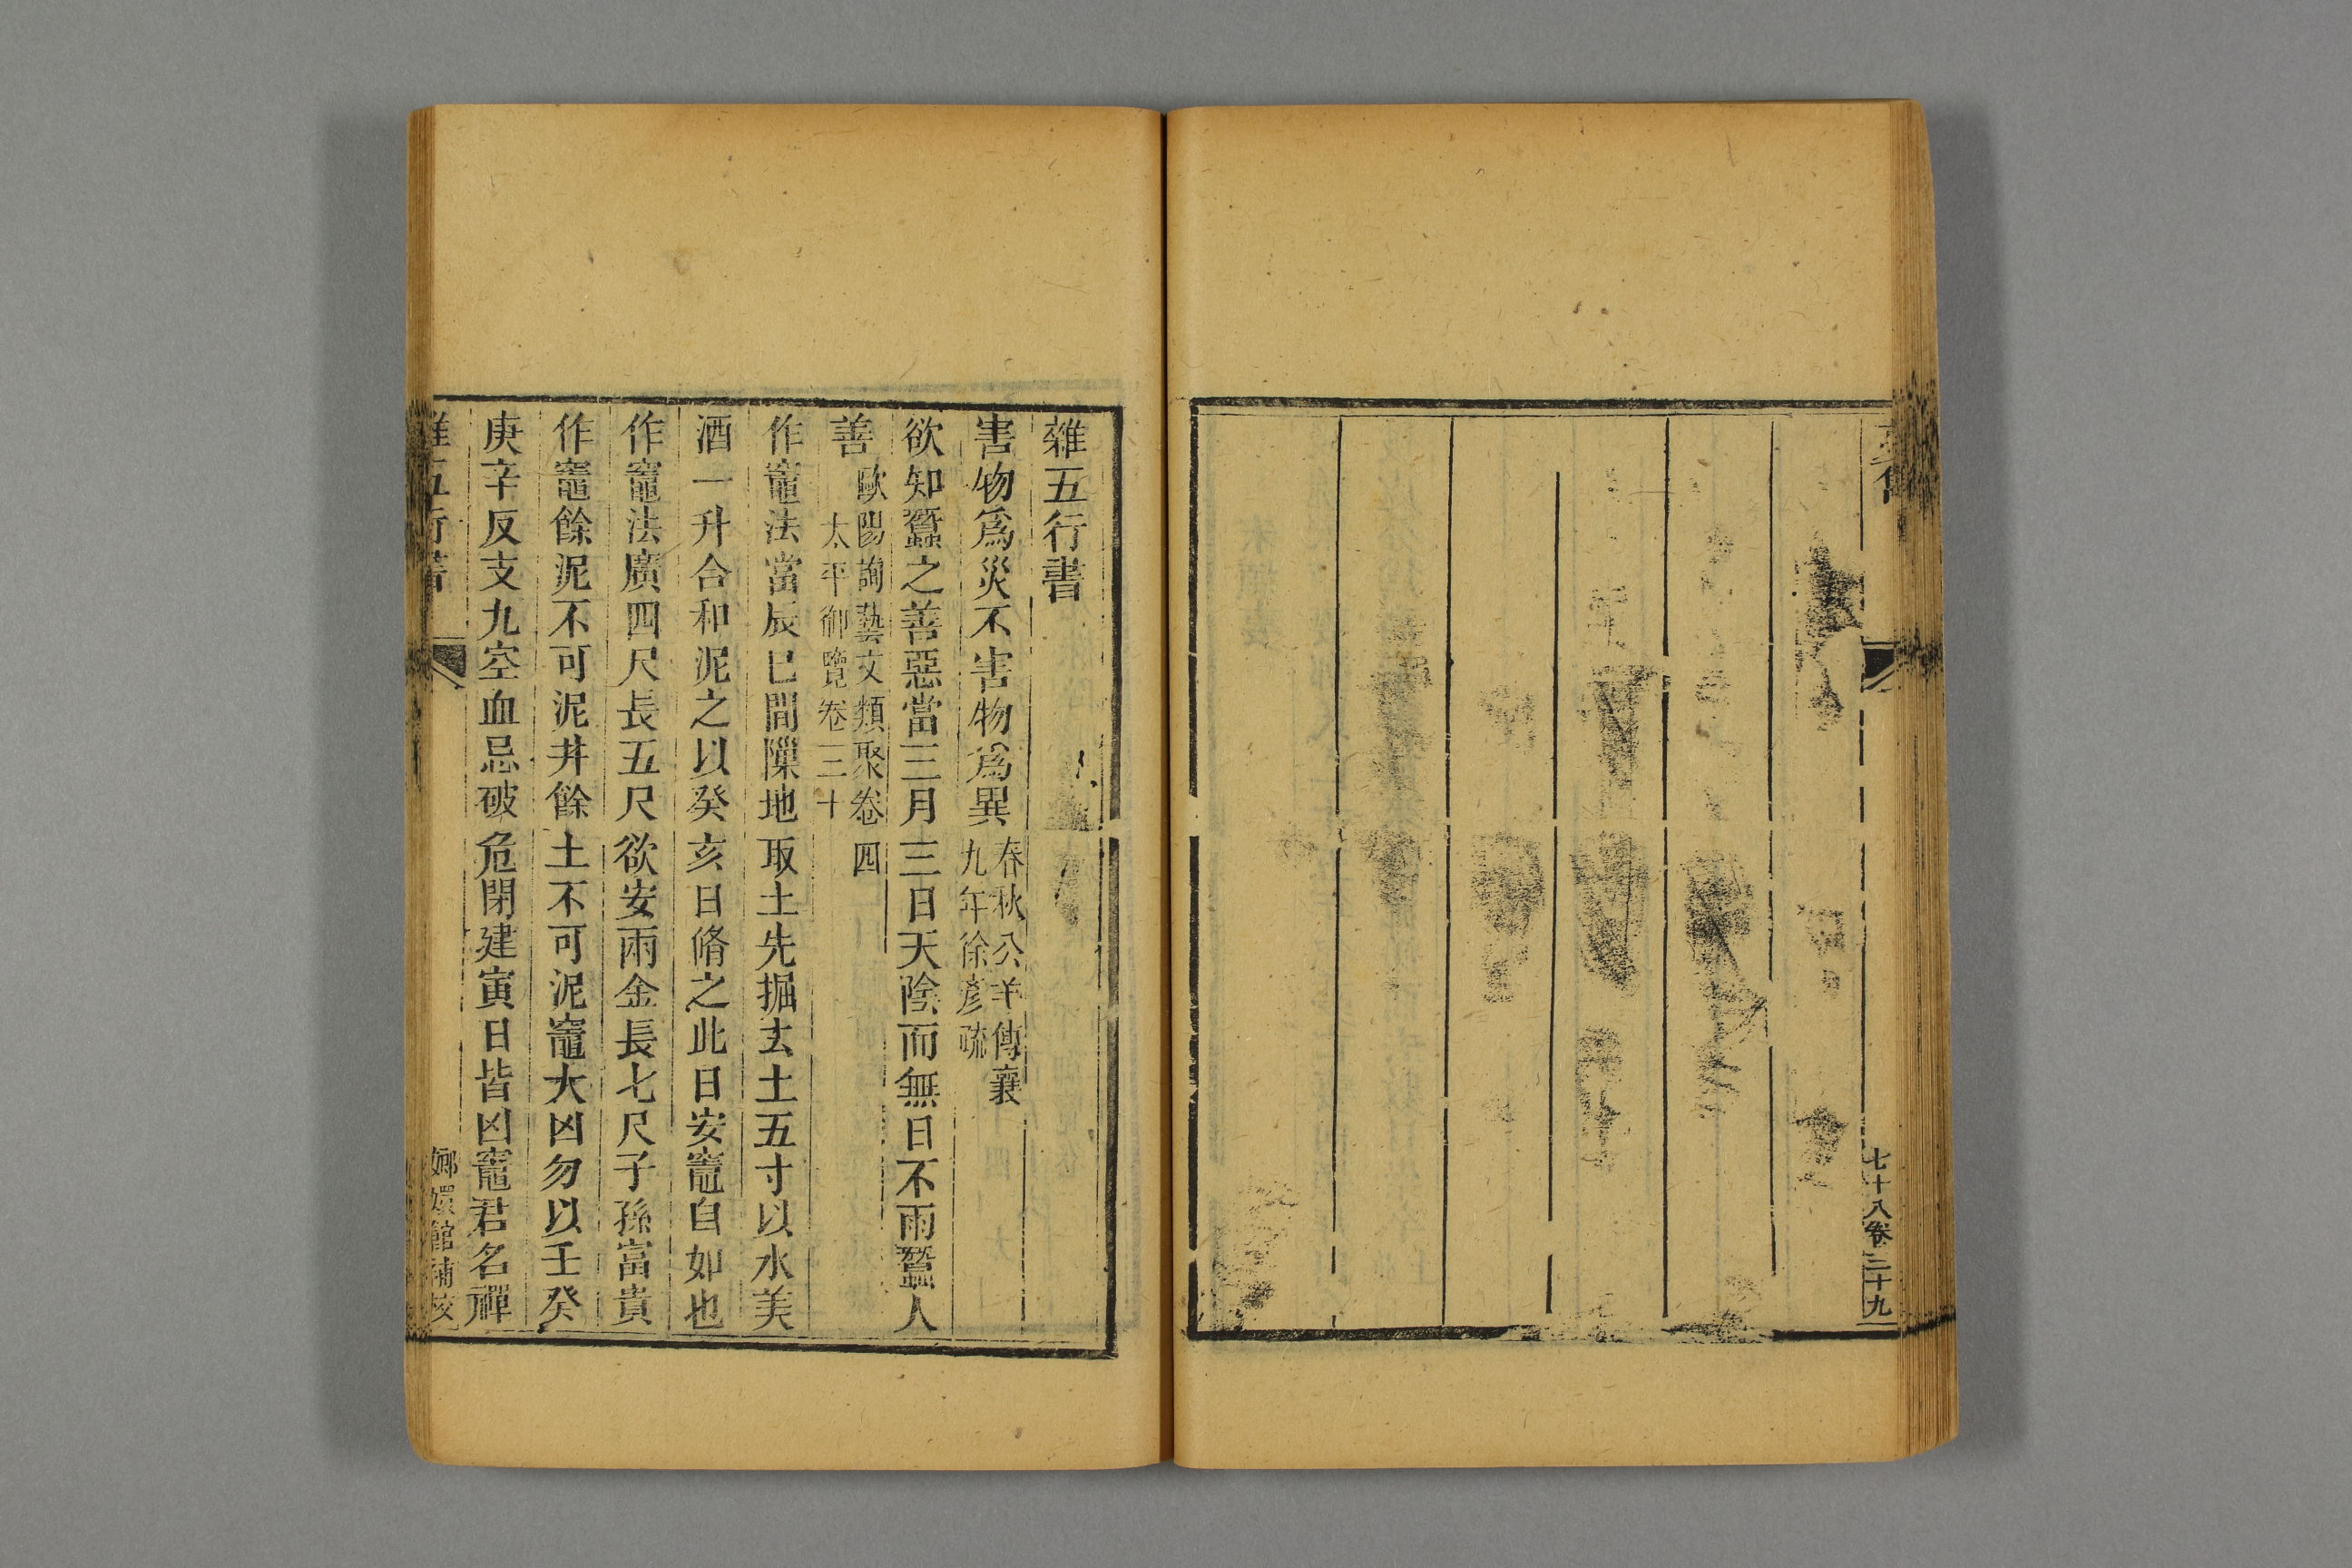 七十八卷二十九
雜五行書
害物爲災不害物爲異
春秋公羊傳襄
九年徐彥疏
欲知蠶之善惡當三月三日天陰而無日不雨蠶人
善
歐陽詢藝文類聚卷四
太平御覽卷三十
作竈法當辰巳間隟地取土先掘去土五寸以水美
酒一升合和泥之以癸亥日脩之此日安竈自如也
作竈法廣四尺長五尺欲安兩金長七尺子孫富貴
作竈餘泥不可泥井餘土不可泥竈大凶勿以壬癸
庚辛反支九空血忌破危閉建寅日皆凶竈君名禪
雜五行書
嫏嬛館補校